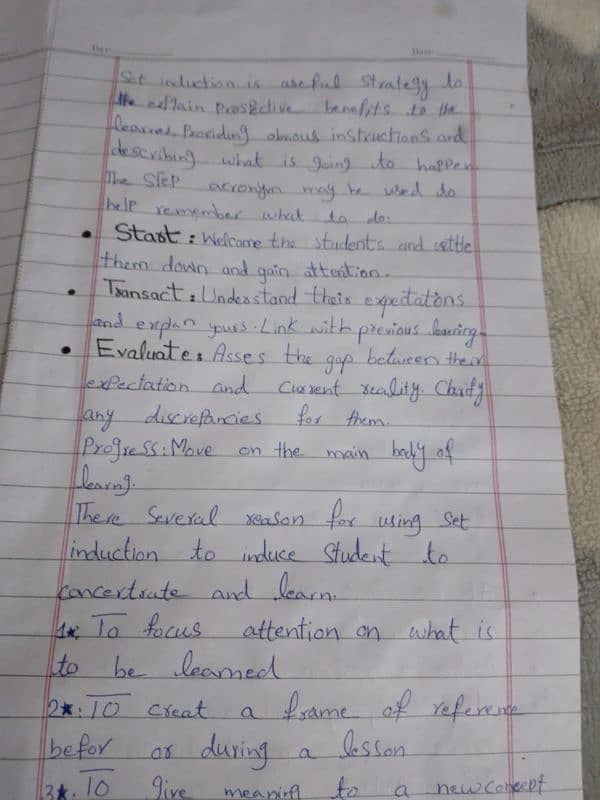 Set induction is useful strategy to
the explain prospective benefits to the
learner. Providing obvious instructions and
describing what is going to happen.
The STEP acronym may be used to
help remember what to do:
• Start: Welcome the students and settle
them down and gain attention.
• Transact: Understand their expectations
and explan yours. Link with previous learning.
• Evaluate: Asses the gap between their
expectation and current reality. Clarify
any discrepancies for them.
Progress: Move on the main body of
learng.
There Several reason for using Set
induction to induce Student to
concertrate and learn.
1*: To focus attention on what is
to be learned
2*: TO creat a frame of reference
befor or during a lesson
3*. TO give meaning to a new concept